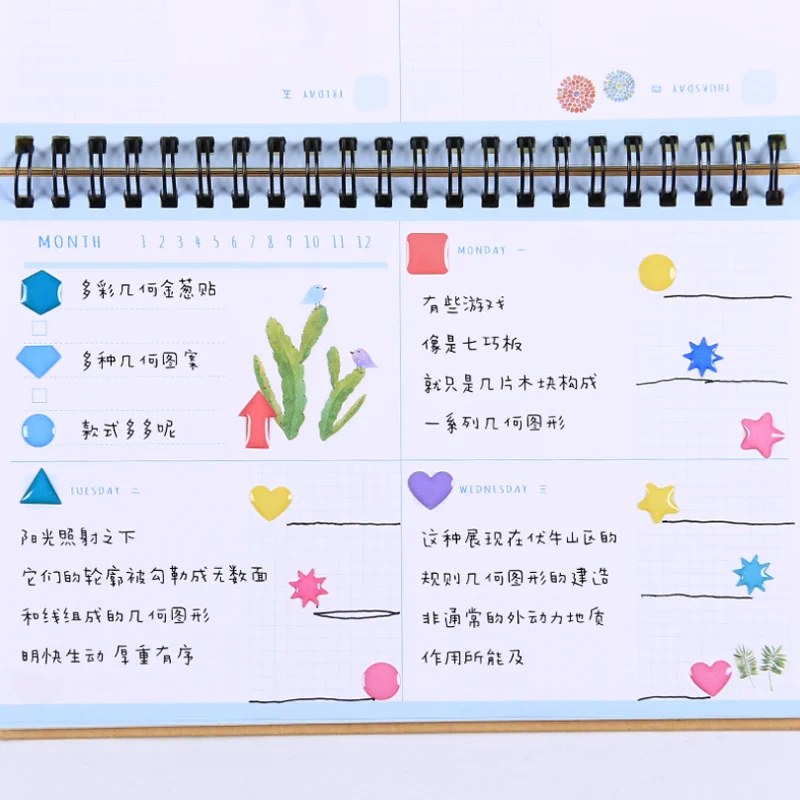 FRIDAY 五
THURSDAY 四
MONTH 1 2 3 4 5 6 7 8 9 10 11 12
多彩几何金葱贴
多种几何图案
款式多多呢
MONDAY 一
有些游戏
像是七巧板
就只是几片木块构成
一系列几何图形
TUESDAY 二
阳光照射之下
它们的轮廓被勾勒成无数面
和线组成的几何图形
明快生动 厚重有序
WEDNESDAY 三
这种展现在伏牛山区的
规则几何图形的建造
非通常的外动力地质
作用所能及